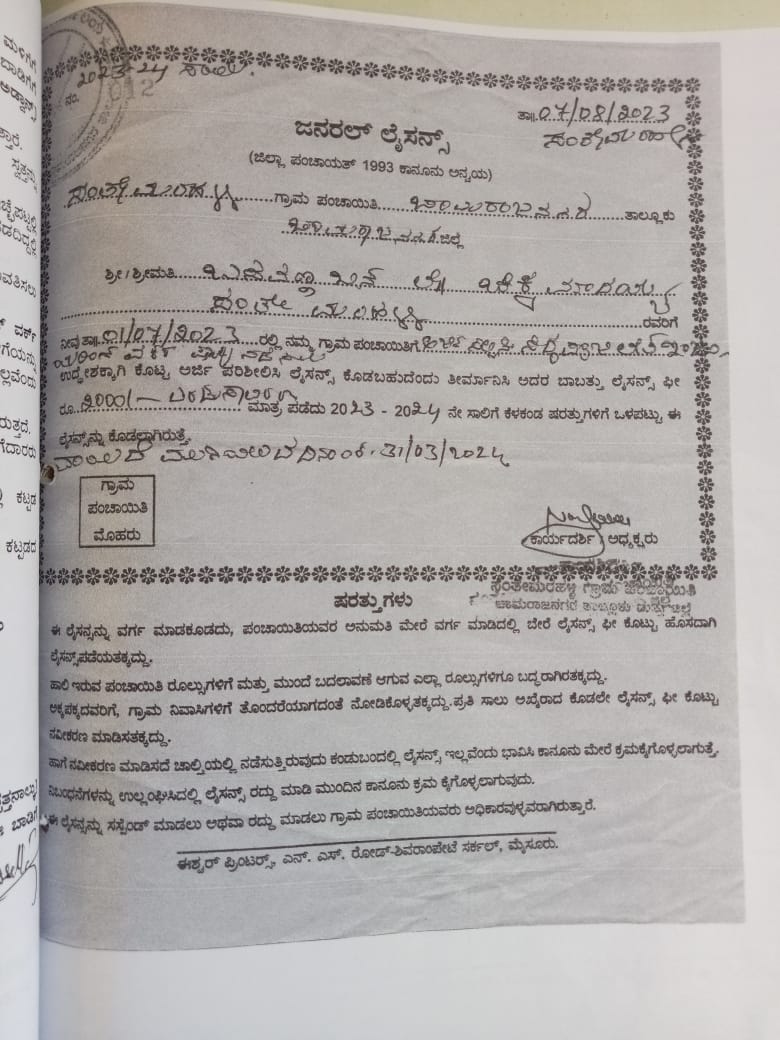 2023-24 ಸಾಲಿಗೆ.
ನಂ. 012
ತಾ॥ 07/08/2023
ಜನರಲ್ ಲೈಸನ್ಸ್
ಸಂತೇಮರಹಳ್ಳಿ
(ಜಿಲ್ಲಾ ಪಂಚಾಯತ್ 1993 ಕಾನೂನು ಅನ್ವಯ)
ಸಂತೇಮರಹಳ್ಳಿ ಗ್ರಾಮ ಪಂಚಾಯಿತಿ ಚಾಮರಾಜನಗರ ತಾಲ್ಲೂಕು
ಚಾಮರಾಜನಗರ ಜಿಲ್ಲೆ
ಶ್ರೀ/ಶ್ರೀಮತಿ ಬಿನ್ ಲೇ
ಸಂತೇಮರಹಳ್ಳಿ ರವರಿಗೆ
ನೀವು ತಾ॥ 01/07/2023 ರಲ್ಲಿ ನಮ್ಮ ಗ್ರಾಮ ಪಂಚಾಯಿತಿಗೆ
ಉದ್ದೇಶಕ್ಕಾಗಿ ಕೊಟ್ಟ ಅರ್ಜಿ ಪರಿಶೀಲಿಸಿ ಲೈಸನ್ಸ್ ಕೊಡಬಹುದೆಂದು ತೀರ್ಮಾನಿಸಿ ಅದರ ಬಾಬತ್ತು ಲೈಸನ್ಸ್ ಫೀ
ರೂ. 2000/- ಎರಡುಸಾವಿರ ಮಾತ್ರ ಪಡೆದು 2023 - 2024 ನೇ ಸಾಲಿಗೆ ಕೆಳಕಂಡ ಷರತ್ತುಗಳಿಗೆ ಒಳಪಟ್ಟು ಈ
ಲೈಸನ್ಸ್‌ನ್ನು ಕೊಡಲ್ಪಾಗಿರುತ್ತೆ.
ವಾಯಿದೆ ಮುಗಿಯುವ ದಿನಾಂಕ: 31/03/2024
ಗ್ರಾಮ
ಪಂಚಾಯಿತಿ
ಮೊಹರು
ಕಾರ್ಯದರ್ಶಿ/ಅಧ್ಯಕ್ಷರು
ಸಂತೇಮರಹಳ್ಳಿ ಗ್ರಾಮ ಪಂಚಾಯಿತಿ
ಚಾಮರಾಜನಗರ ತಾಲ್ಲೂಕು ಮತ್ತು ಜಿಲ್ಲೆ
ಷರತ್ತುಗಳು
ಈ ಲೈಸನ್ಸನ್ನು ವರ್ಗ ಮಾಡಕೂಡದು, ಪಂಚಾಯಿತಿಯವರ ಅನುಮತಿ ಮೇರೆ ವರ್ಗ ಮಾಡಿದಲ್ಲಿ ಬೇರೆ ಲೈಸನ್ಸ್ ಫೀ ಕೊಟ್ಟು ಹೊಸದಾಗಿ
ಲೈಸನ್ಸ್‌ಪಡೆಯತಕ್ಕದ್ದು.
ಹಾಲಿ ಇರುವ ಪಂಚಾಯಿತಿ ರೂಲ್ಸುಗಳಿಗೆ ಮತ್ತು ಮುಂದೆ ಬದಲಾವಣೆ ಆಗುವ ಎಲ್ಲಾ ರೂಲ್ಸುಗಳಿಗೂ ಬದ್ದರಾಗಿರತಕ್ಕದ್ದು.
ಅಕ್ಕಪಕ್ಕದವರಿಗೆ, ಗ್ರಾಮ ನಿವಾಸಿಗಳಿಗೆ ತೊಂದರೆಯಾಗದಂತೆ ನೋಡಿಕೊಳ್ಳತಕ್ಕದ್ದು.ಪ್ರತಿ ಸಾಲು ಅಖೈರಾದ ಕೂಡಲೇ ಲೈಸನ್ಸ್ ಫೀ ಕೊಟ್ಟು
ನವೀಕರಣ ಮಾಡಿಸತಕ್ಕದ್ದು.
ಹಾಗೆ ನವೀಕರಣ ಮಾಡಿಸದೆ ಚಾಲ್ತಿಯಲ್ಲಿ ನಡೆಸುತ್ತಿರುವುದು ಕಂಡುಬಂದಲ್ಲಿ ಲೈಸನ್ಸ್ ಇಲ್ಲವೆಂದು ಭಾವಿಸಿ ಕಾನೂನು ಮೇರೆ ಕ್ರಮಕೈಗೊಳ್ಳಲಾಗುತ್ತೆ.
ನಿಬಂಧನೆಗಳನ್ನು ಉಲ್ಲಂಘಿಸಿದಲ್ಲಿ ಲೈಸನ್ಸ್ ರದ್ದು ಮಾಡಿ ಮುಂದಿನ ಕಾನೂನು ಕ್ರಮ ಕೈಗೊಳ್ಳಲಾಗುವುದು.
ಈ ಲೈಸನ್ಸನ್ನು ಸಸ್ಪೆಂಡ್ ಮಾಡಲು ಅಥವಾ ರದ್ದು ಮಾಡಲು ಗ್ರಾಮ ಪಂಚಾಯಿತಿಯವರು ಅಧಿಕಾರವುಳ್ಳವರಾಗಿರುತ್ತಾರೆ.
ಈಶ್ವರ್ ಪ್ರಿಂಟರ್ಸ್, ಎನ್. ಎಸ್. ರೋಡ್-ಶಿವರಾಂಪೇಟೆ ಸರ್ಕಲ್, ಮೈಸೂರು.